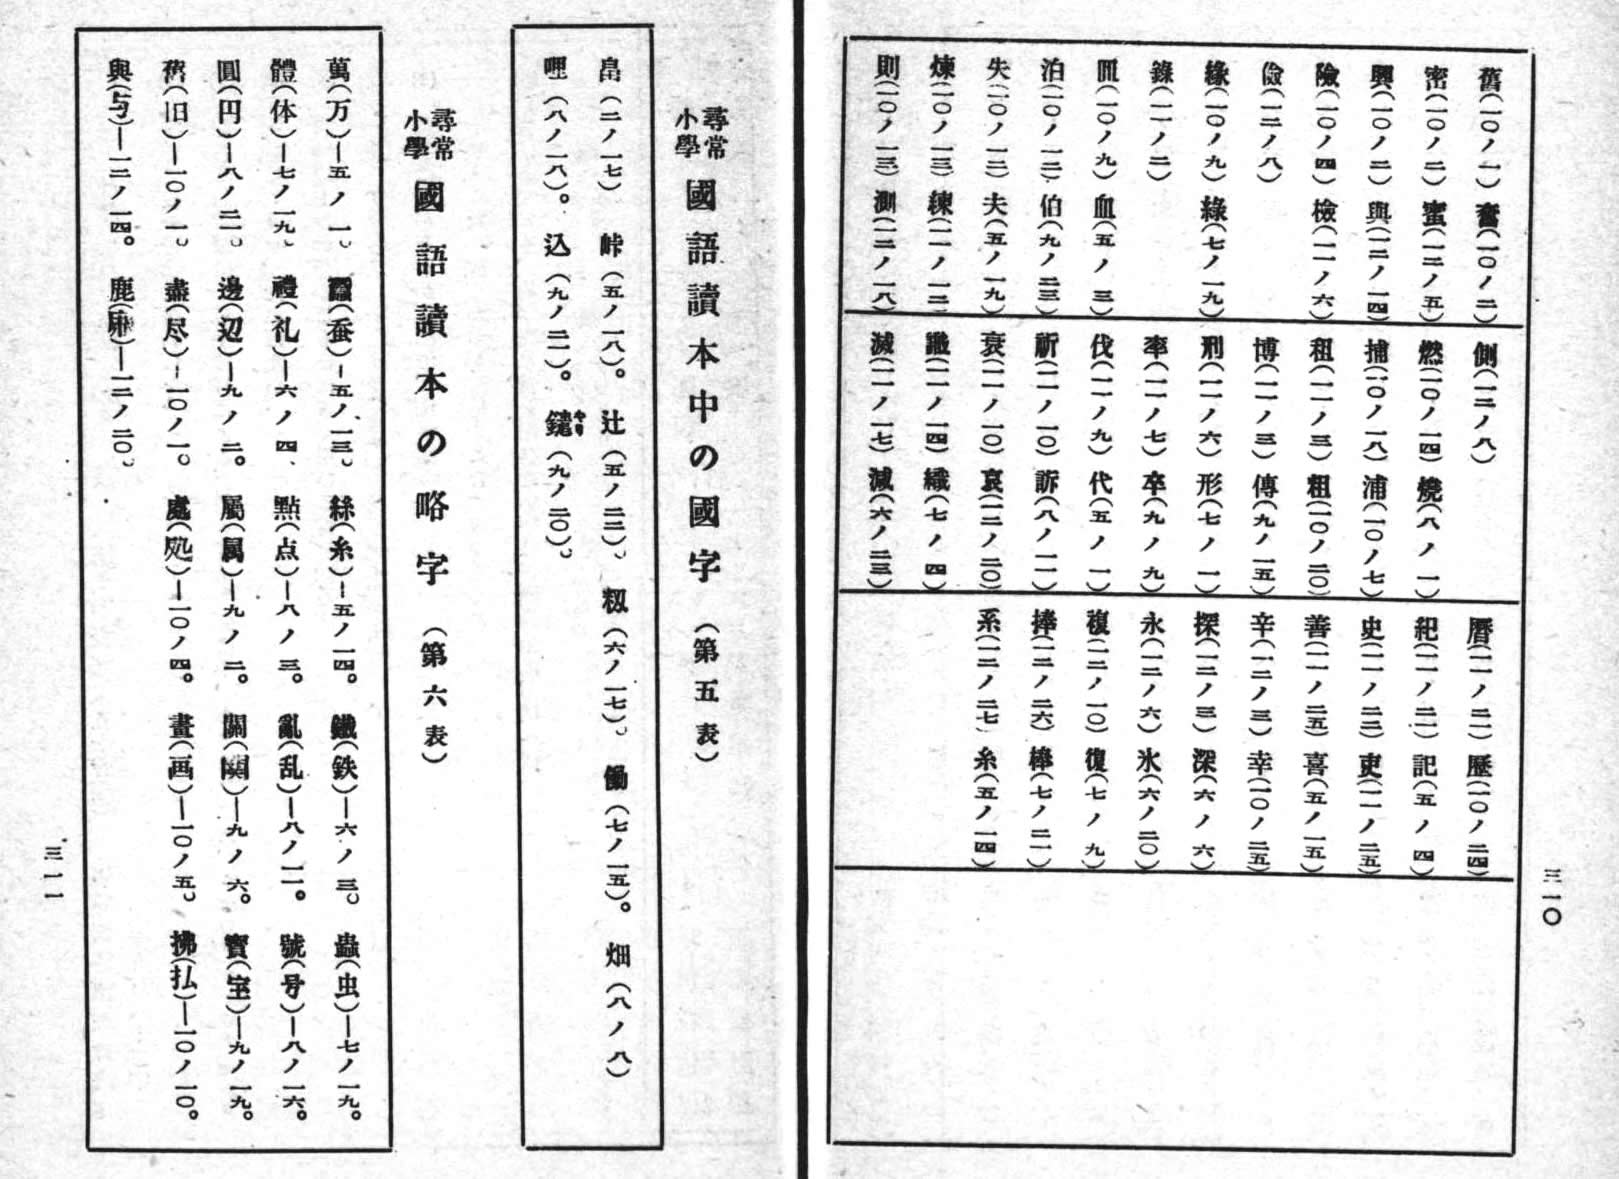 舊(一〇ノ一)奮(一〇ノ二)
密(一〇ノ二)蜜(一二ノ五)
興(一〇ノ二)與(一二ノ一四)
險(一〇ノ四)檢(一一ノ六)
儉(一二ノ八)
緣(一〇ノ九)綠(七ノ一九)
錄(一一ノ二)
皿(一〇ノ九)血(五ノ三)
泊(一〇ノ一二)伯(九ノ二三)
失(一〇ノ一二)夫(五ノ一九)
煉(一〇ノ一三)練(一一ノ一二)
則(一〇ノ一三)測(一二ノ一八)
側(一二ノ八)
燃(一〇ノ一四)燒(八ノ一)
捕(一〇ノ一八)浦(一〇ノ七)
租(一一ノ三)粗(一〇ノ二〇)
博(一一ノ三)傳(九ノ一五)
刑(一一ノ六)形(七ノ一)
率(一一ノ七)卒(九ノ九)
伐(一一ノ九)代(五ノ一)
祈(一一ノ一〇)訴(八ノ一一)
衰(一一ノ一〇)哀(一二ノ二〇)
識(一一ノ一四)織(七ノ四)
滅(一一ノ一七)減(六ノ二三)
曆(一一ノ二一)歷(一〇ノ二四)
紀(一一ノ二一)記(五ノ四)
史(一一ノ二三)吏(一一ノ二五)
善(一一ノ二五)喜(五ノ一五)
辛(一二ノ三)幸(一〇ノ二五)
探(一二ノ三)深(六ノ六)
永(一二ノ六)氷(六ノ二〇)
複(一二ノ一〇)復(七ノ九)
捧(一二ノ二六)棒(七ノ二一)
系(一二ノ二七)糸(五ノ一四)
三一〇
尋常小學國語讀本中の國字(第五表)
畠(二ノ一七) 峠(五ノ一八)。 辻(五ノ二二)、 籾(六ノ一七)、 働(七ノ一五)。 畑(八ノ八)
哩(八ノ一八)。 込(九ノ二一)。 鑓(九ノ二〇)、
尋常小學國語讀本の略字(第六表)
萬(万)—五ノ一、 蠶(蚕)—五ノ一三、 絲(糸)—五ノ一四。 鐵(鉄)—六ノ三、 蟲(虫)—七ノ一九。
體(体)—七ノ一九、 禮(礼)—六ノ四、 點(点)—八ノ三。 亂(乱)—八ノ一一。 號(号)—八ノ一六。
圓(円)—八ノ二一、 邊(辺)—九ノ二。 屬(属)—九ノ二。 關(関)—九ノ六。 寶(宝)—九ノ一九。
舊(旧)—一〇ノ一、 盡(尽)—一〇ノ一。 處(処)—一〇ノ四。 畫(画)—一〇ノ五、 拂(払)—一〇ノ一〇。
與(与)—一二ノ一四。 鹿()—一二ノ二〇、
三一一